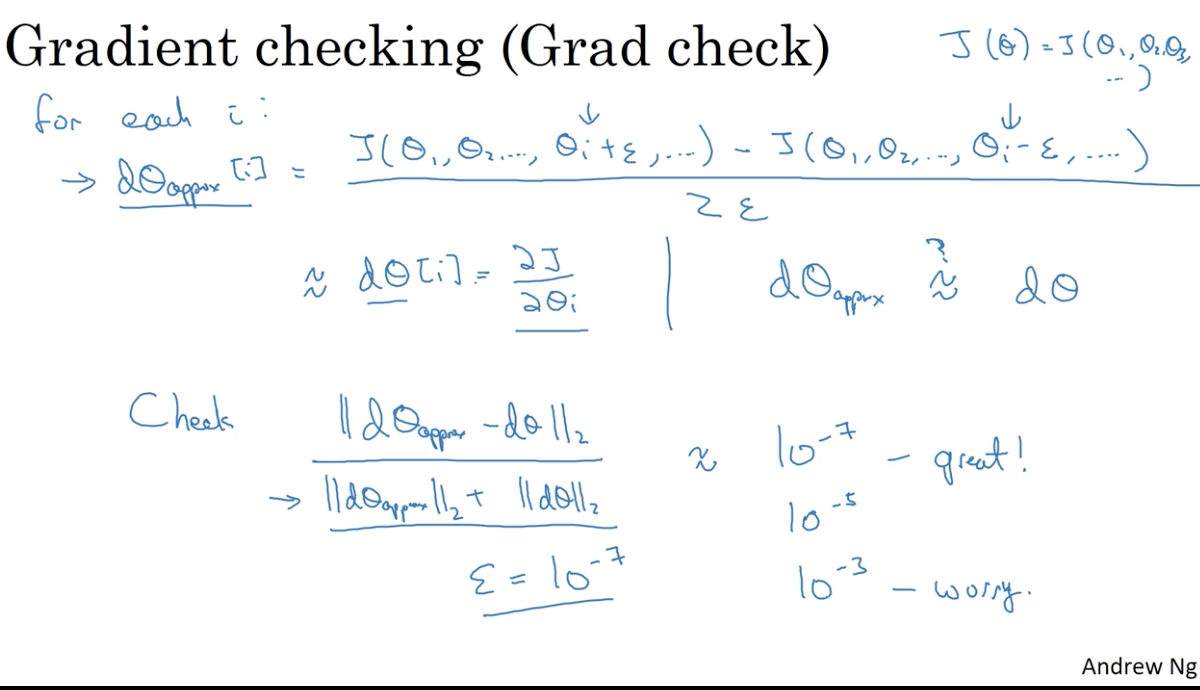 Gradient checking (Grad check)
J(θ) = J(θ₁, θ₂, θ₃, ...)
for each i:
→ dθapprox[i] = (J(θ₁, θ₂, ..., θᵢ+ε, ...) - J(θ₁, θ₂, ..., θᵢ-ε, ...)) / 2ε
≈ dθ[i] = ∂J/∂θᵢ | dθapprox ≈? dθ
Check ||dθapprox - dθ||₂ ≈ 10⁻⁷ - great!
→ ||dθapprox||₂ + ||dθ||₂ 10⁻⁵
ε = 10⁻⁷ 10⁻³ - worry.
Andrew Ng